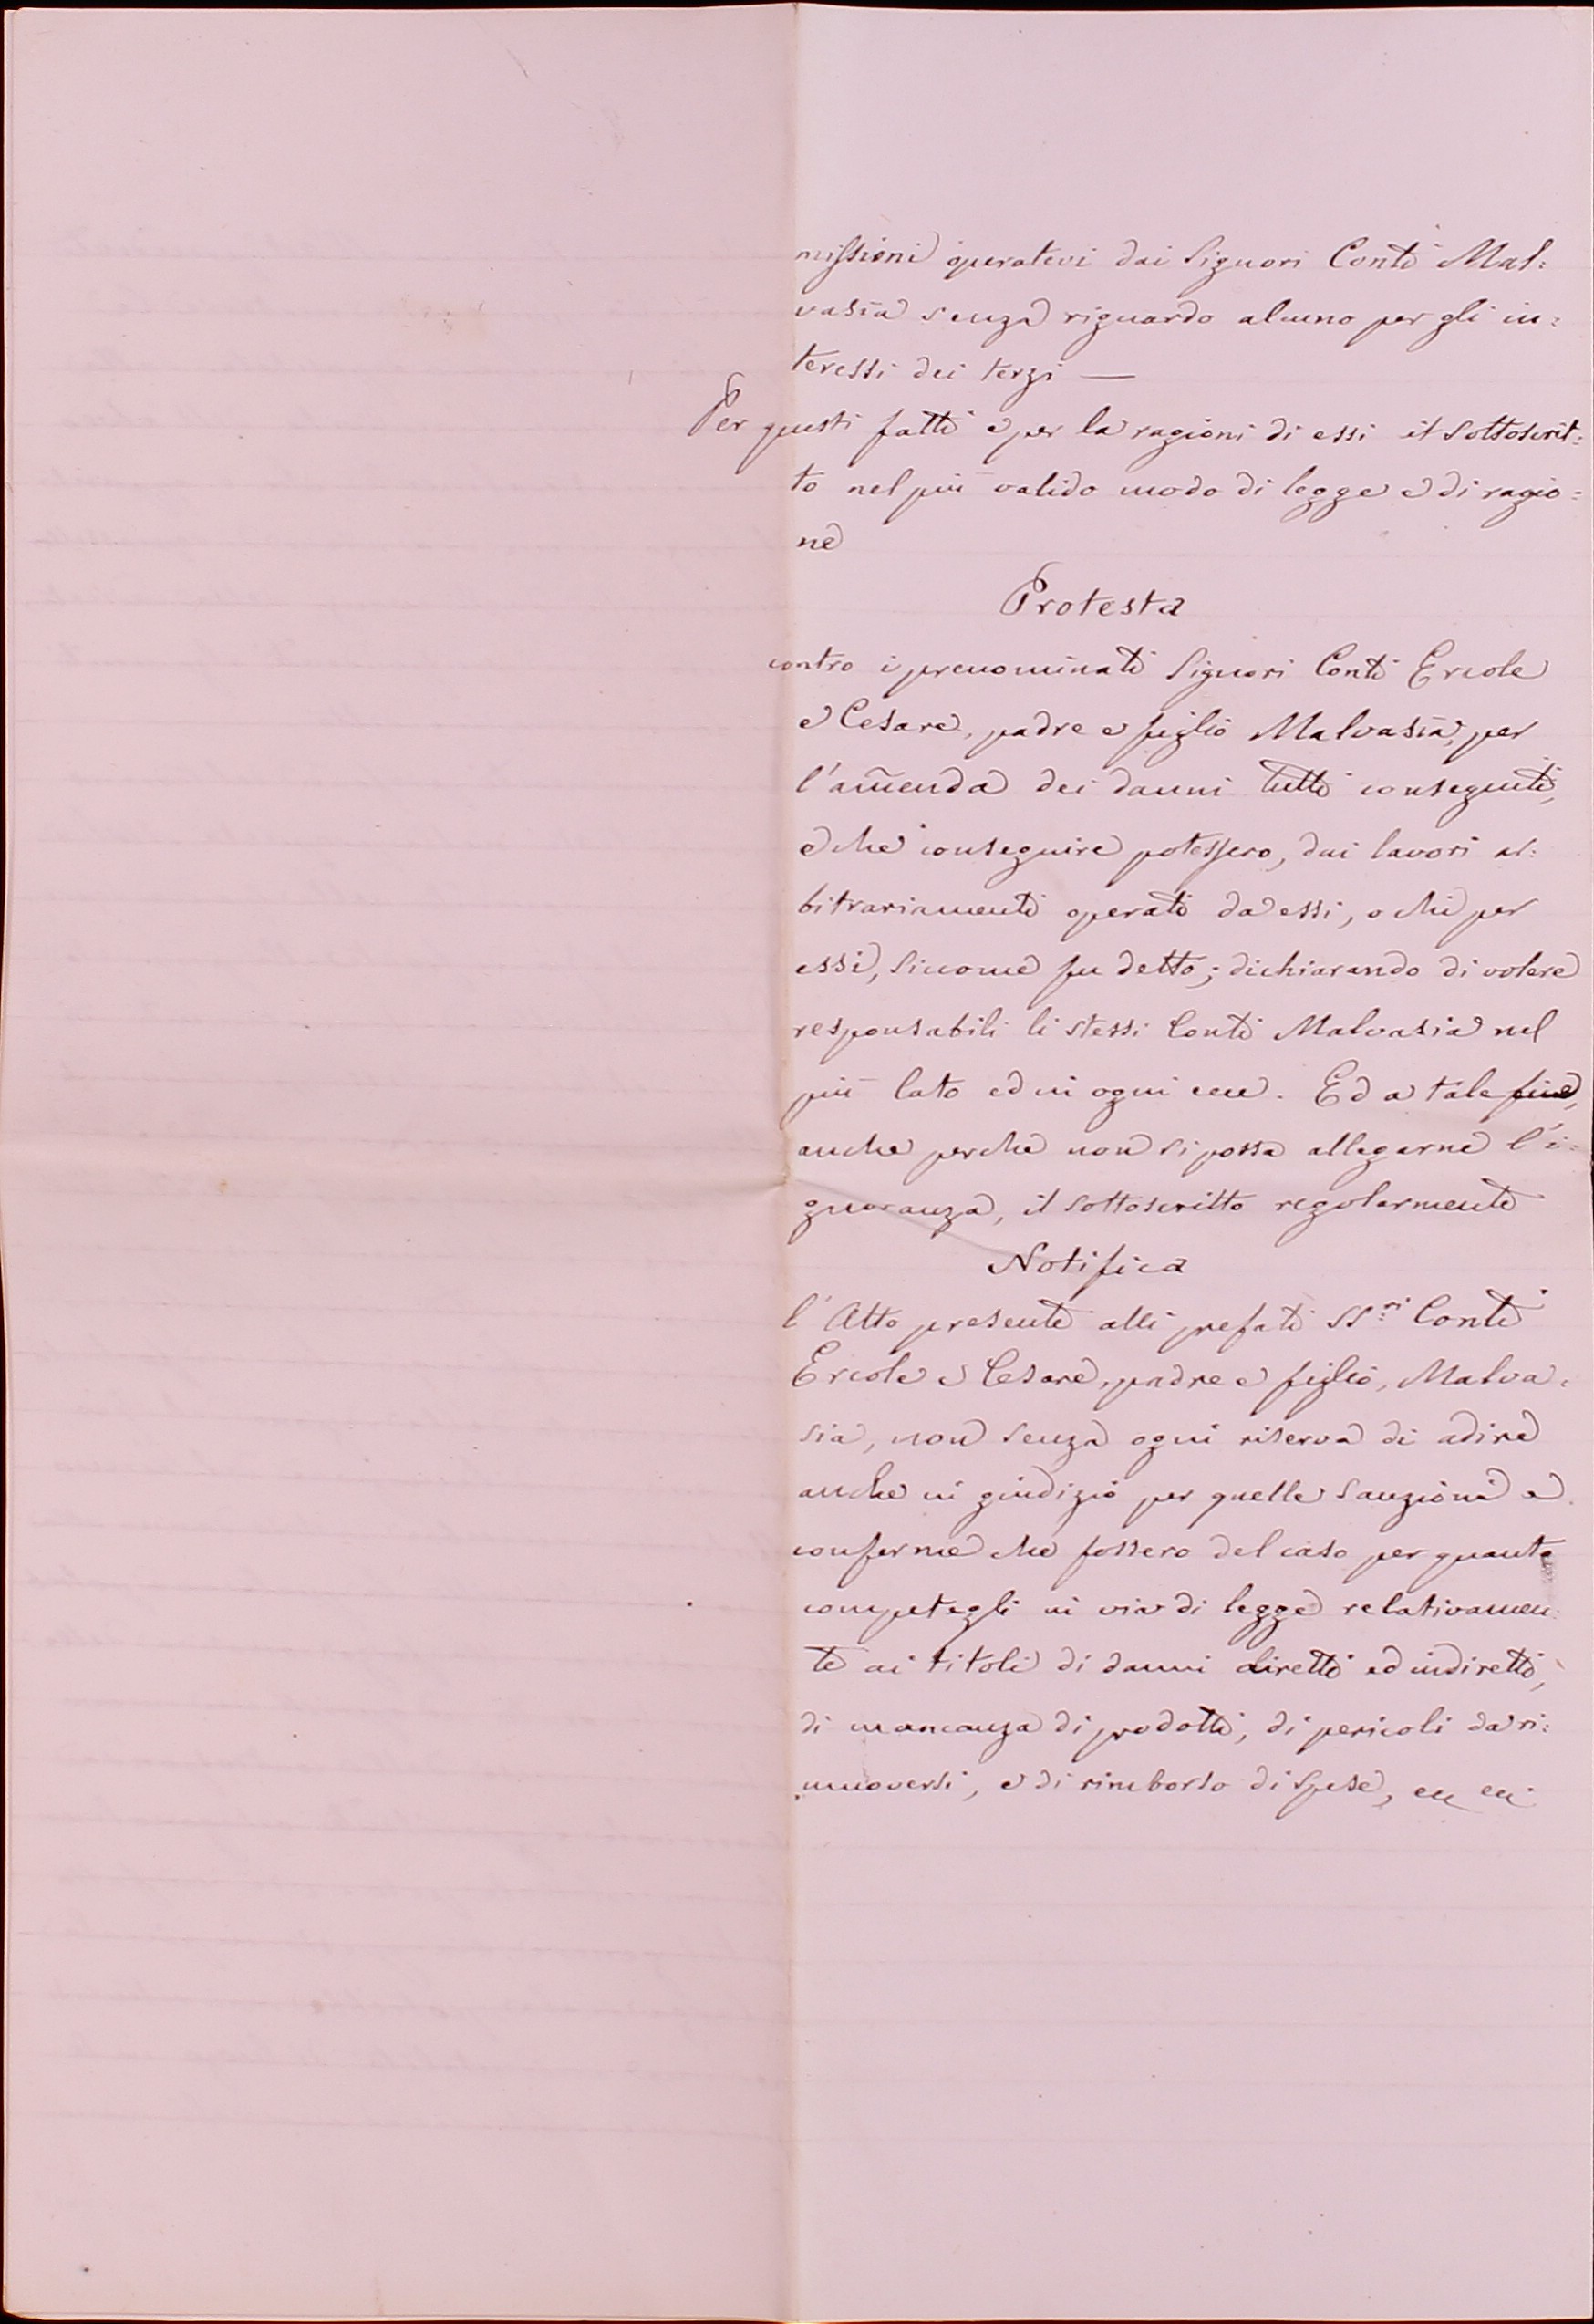 missioni operatevi dai Signori Conti Mal=
vasia senza riguardo alcuno per gli in=
teressi dei terzi —
Per questi fatti e per la ragioni di essi il sottoscrit=
to nel più valido modo di legge e di ragio=
ne
Protesta
contro i prenominati Signori Conti Ercole
e Cesare, padre e figlio Malvasia, per
l'amenda dei danni tutti conseguiti,
e che conseguire potessero, dai lavori ar=
bitrariamente operati da essi, o chi per
essi, siccome fu detto; dichiarando di volere
responsabili li stessi Conti Malvasia nel
più lato ed in ogni ecc. Ed a tale fine,
anche perchè non si possa allegarne l'i=
gnoranza, il sottoscritto regolarmente
Notifica
l'Atto presente alli prefati SS.ri Conti
Ercole e Cesare, padre e figlio, Malva=
sia, non senza ogni riserva di adire
anche in giudizio per quelle sanzioni e
conferme che fossero del caso per quanto
competegli in via di legge relativamen=
te ai titoli di danni diretti ed indiretti,
di mancanza di prodotti, di pericoli da ri=
muoversi, e di rimborso di spese,